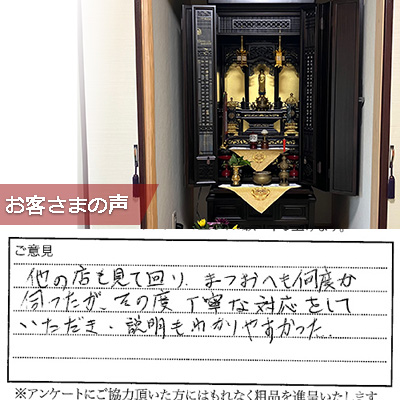 お客さまの声
ご意見
他の店も見て回り、まつおへも何度か
伺ったが、その度丁寧な対応をして
いただき、説明もわかりやすかった
※アンケートにご協力頂いた方にはもれなく粗品を進呈いたします